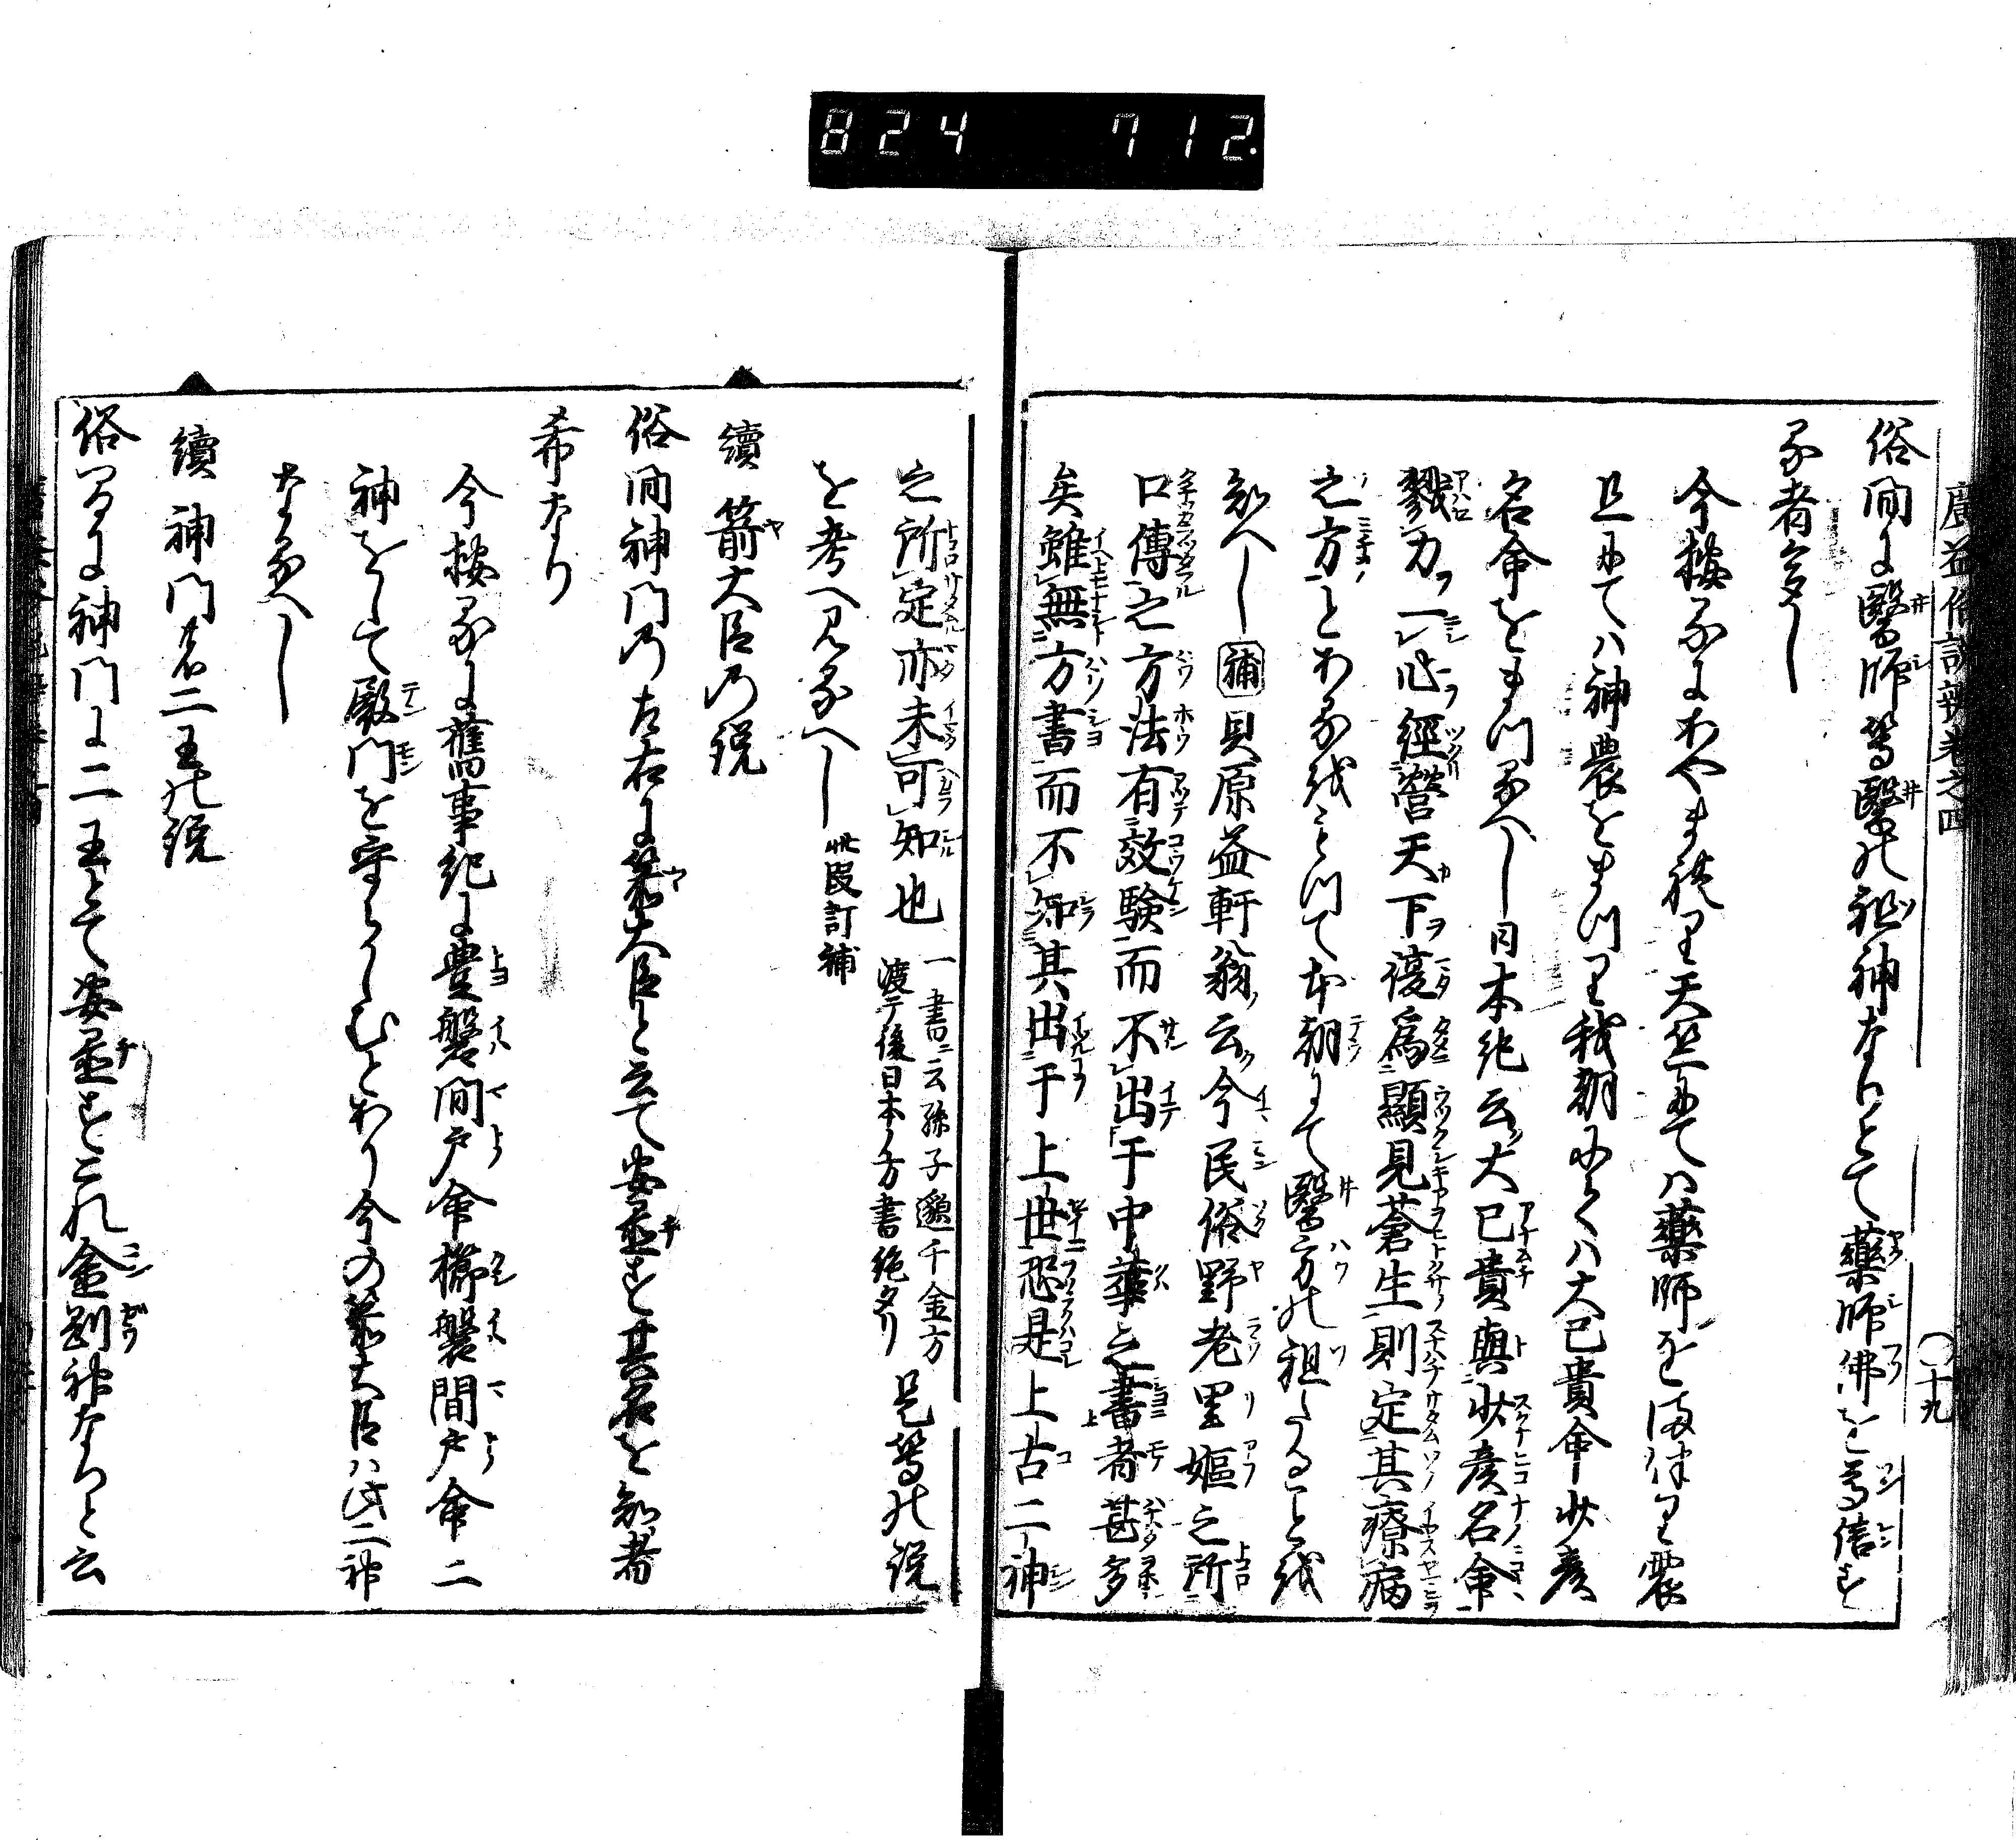 824 712.
廣益俗説辨卷之四 〇十九
俗間に醫師等醫の祖神なりとて藥師佛を尊信す
る者多し
今按るにあやまれり天竺にては藥師をまつり震
旦にては神農をまつり我朝にては大已貴命少彦
名命をまつるべし日本紀云大已貴與少彦名命
戮力一心經營天下復爲顯見蒼生則定其療病
之方とある我もつて本朝にて醫方の祖たること
知べし補貝原益軒翁云今民俗野老里嫗之所
口傳之方法有效驗而不出于中華之書者甚多
矣雖無方書而不知其出于上世恐是上古二神
之所定亦未可知也
一書ニ云孫子邈千金方
渡テ後日本ノ方書絶タリ
是等の説
を考へ見るべし 此段訂補
續 箭大臣の説
俗間神門の左右に箭大臣と云て安置す其名を知者
希なり
今按るに舊事紀に豊磐間戸命櫛磐間戸命二
神をして殿門を守らしむとあり今の箭大臣は此二神
なるべし
續 神門者二王の説
俗間に神門に二王とて安置すこれ金剛神なりと云